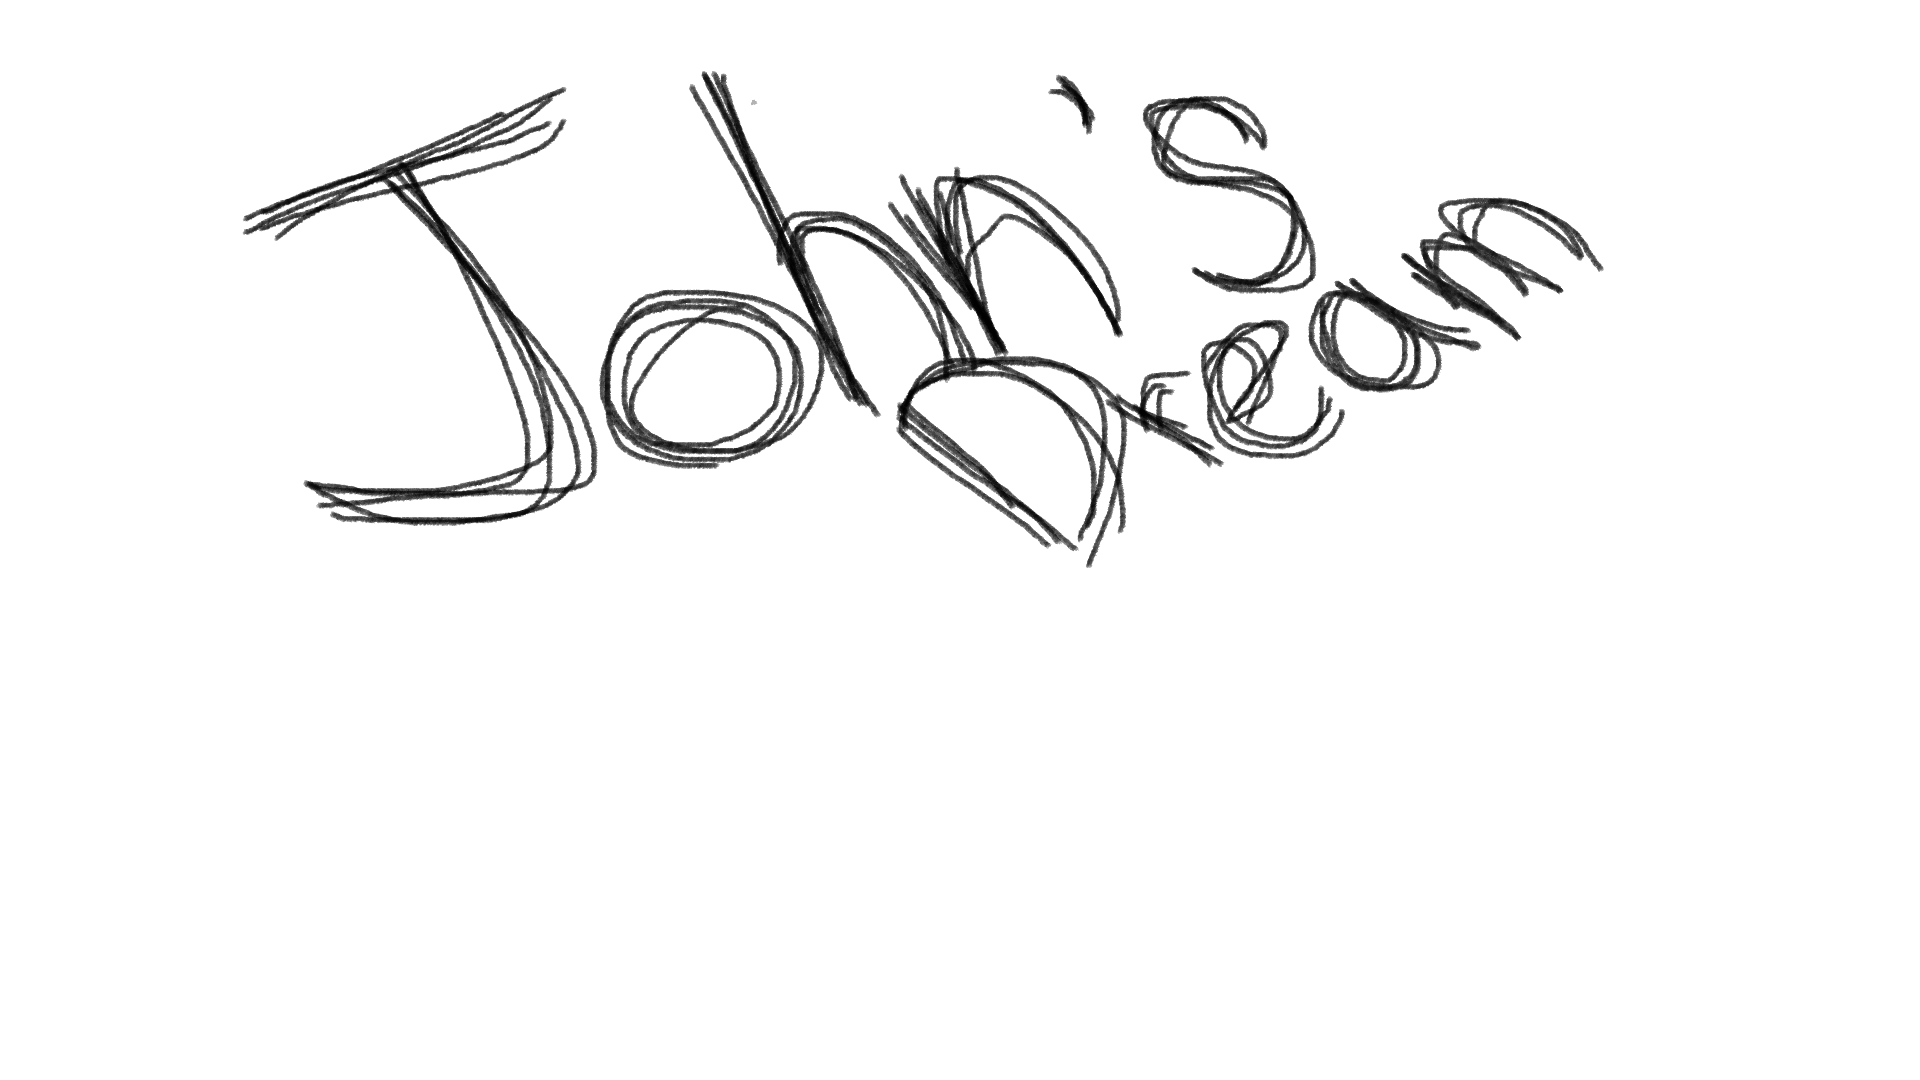 John's
Dream